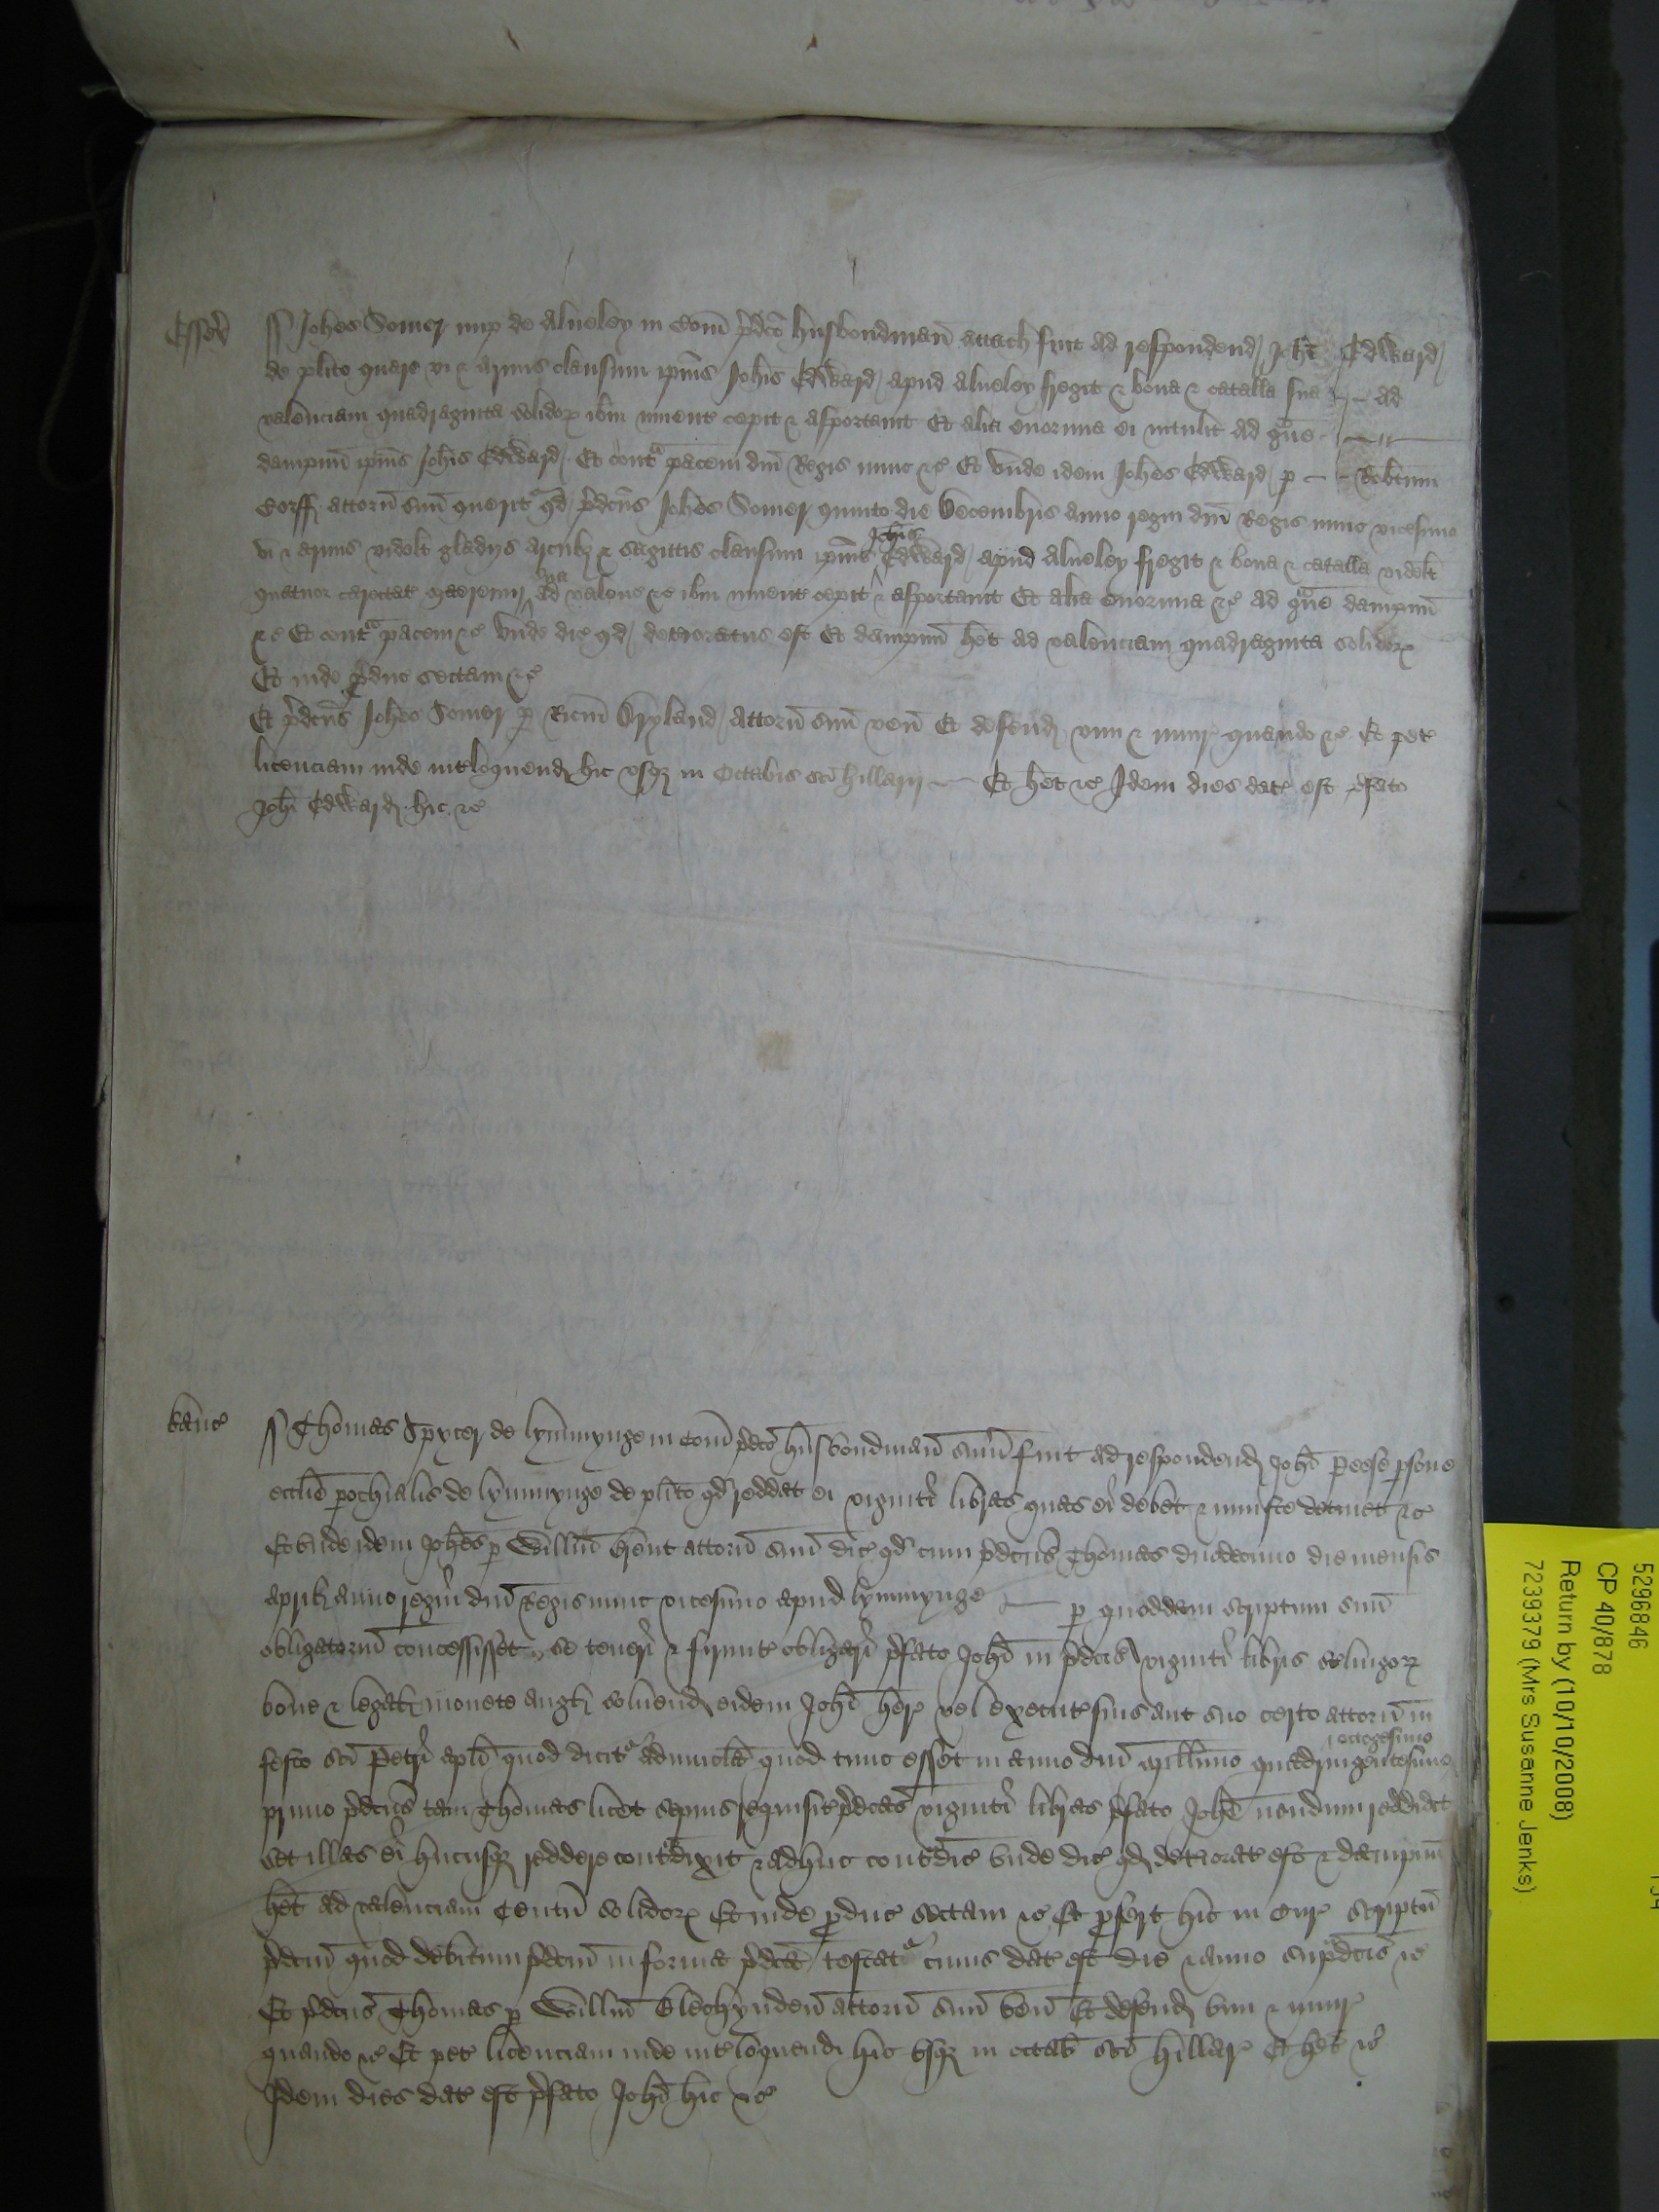 Essex̄ ss Joh̄es Somer nup de Alueley in Com̄ p̄dc̄o husbondman̄ attach fuit ad respondend Joh̄i Edward
de pl̄ito quare vi & armis clausum ip̄ius Joh̄is Edward apud Alueley fregit & bona & catalla sua — ad
valenciam quadraginta solidoꝝ ib̄m inuent cepit & asportauit Et alia enormia ei intulit ad g͛ue
dampnū ip̄ius Joh̄is Edward Et contᵃ pacem dn̄i Regis nunc &c̄ Et vnde idem Joh̄es Edward p —
attorn̄ suū querit qd p̄dc̄us Joh̄es Somer quinto die Decembris anno regni dn̄i Regis nunc vicesimo
vi & armis videlt gladijs arcub & sagittis clausum ip̄ius Joh̄is Edward apud Alueley fregit & bona & catalla videlt
quatuor carectat maeremij sua ad valenc &c̄ ib̄m inuent cepit & asportauit Et alia enormia &c̄ ad gᵃue dampnū
&c̄ Et contᵃ pacem &c̄ vnde dic qd deterioratus est Et dampnū het ad valenciam quadraginta solidoꝝ
Et inde p̄duc sectam &c̄
Et p̄dc̄us Joh̄es Somer p Ricm̄ attorn̄ suū ven̄ Et defend vim & iniur quando &c̄ Et pet
licenciam inde intloquend hic vsqꝫ in Octabis sc̄i Hillarij — Et het &c̄ Idem dies dat est p̄fato
Joh̄i Edward hic &c̄
kanc ss Thomas Spycer de lymmynge in Com̄ p̄dc̄o husbondman̄ sum̄ fuit ad respondend Joh̄i Peese p̄sone
eccl̄ie p̄ochialis de lymmynge de pl̄ito qd reddat ei viginti libras quas ei debet & iniuste detinet &c̄
Et vnde idem Joh̄es p Willm̄ attorn̄ suū dic qd cum p̄dc̄us Thomas duodecimo die mensis
aprilis anno regni dn̄i Regis nunc vicesimo apud lymmynge — p quoddam scriptum suū
obligatoriū concessisset se teneri & firmit obligari p̄fato Joh̄i in p̄dc̄is viginti libris sterlingoꝝ
bone & legalis monete angl soluend eidem Joh̄i hered vel executoꝝ suis aut suo certo attorn̄ in
festo sc̄i Petri apl̄i quod dicitᵃ aduincl̄a quod tunc esset in anno dn̄i mill̄imo quadringentesimo octogesimo
primo p̄dc̄us tam̄ Thomas licet sepius requisit p̄dc̄as viginti libras p̄fato Joh̄i nondum reddidit
set illas ei hucusqꝫ reddere contᵃdixit & adhuc contᵃdic vnde dic qd deteriorat est & dampnū
het ad valenciam Centū solidoꝝ Et inde p̄duc sectam &c̄ Et p̄fert hic in Cur scriptū
p̄dc̄m quod debitum p̄dc̄m in forma p̄dc̄a testatᵃ cuius dat est die & anno sup̄dc̄is &c̄
Et p̄dc̄us Thomas p Willm̄ Blechynden̄ attorn̄ suū ven̄ Et defend vim & iniur
quando &c̄ Et pet licenciam inde intloquendi hic vsqꝫ in octab sc̄i Hillar Et het &c̄
Idem dies dat est p̄fato Joh̄i hic &c̄
5296846
CP 40/878
Return by (10/10/2008)
7239379 (Mrs Susanne Jenks)